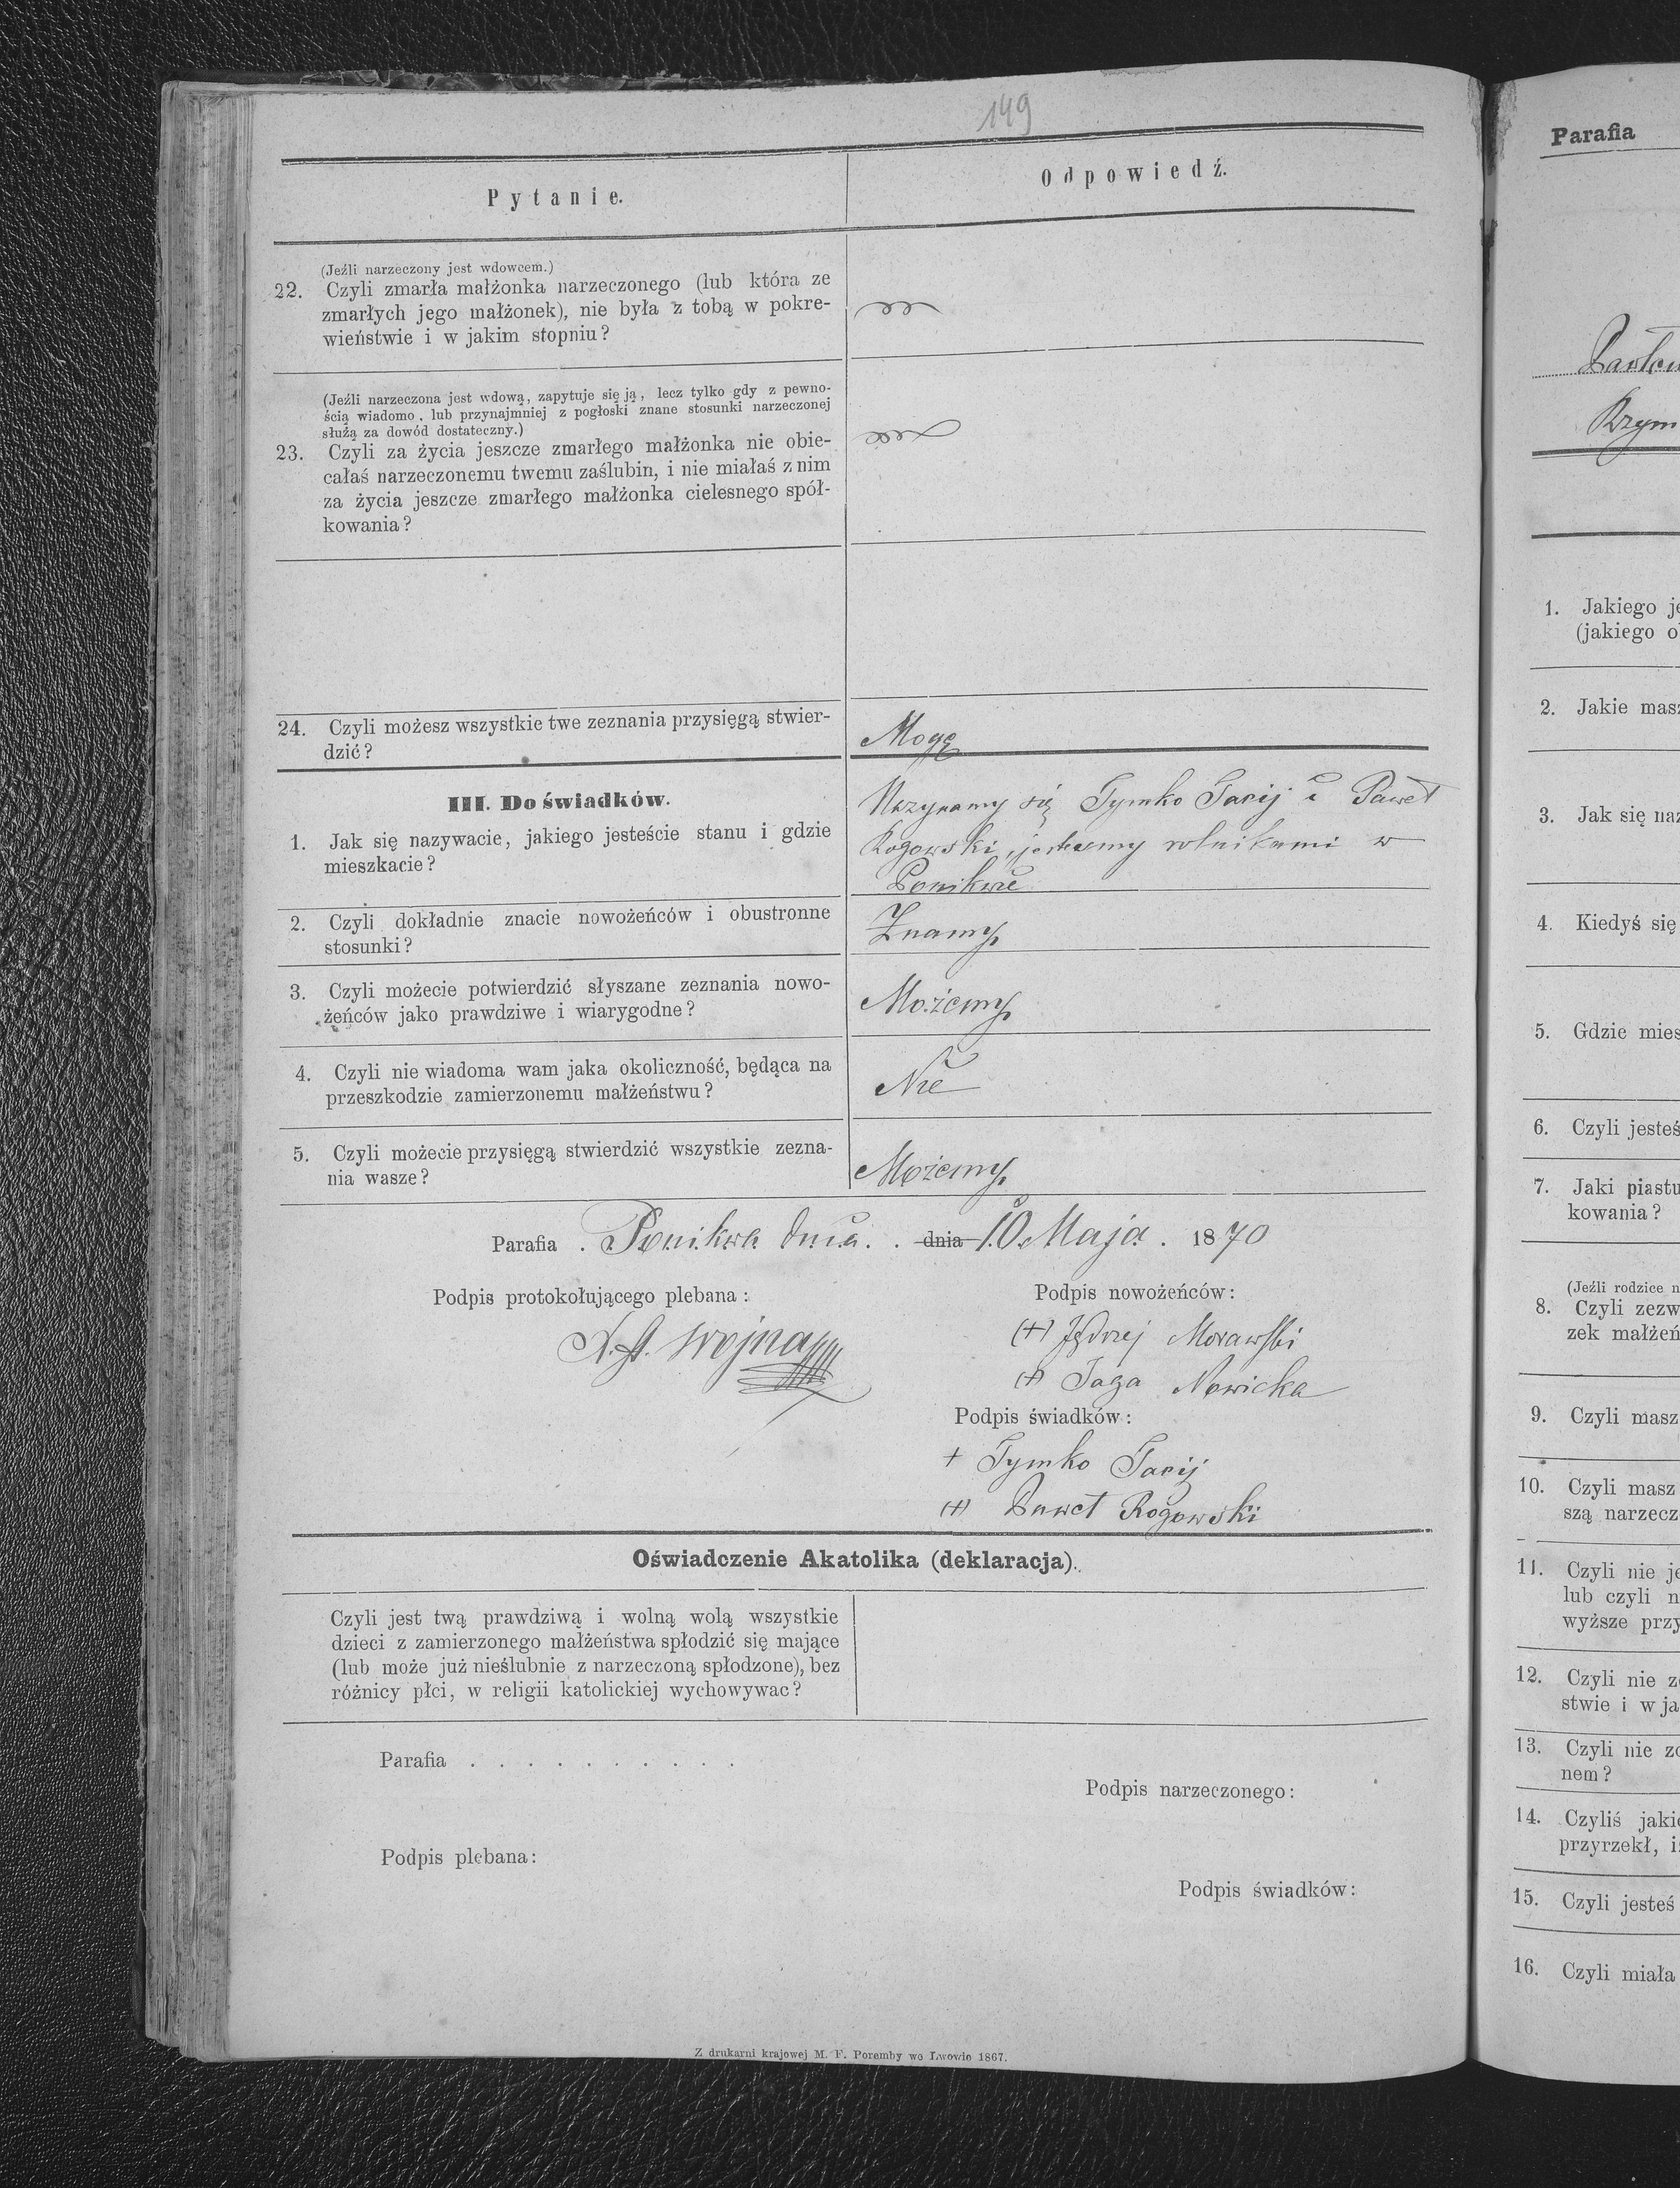 149
Pytanie.
Odpowiedź.
(Jeźli narzeczony jest wdowcem.)
22. Czyli zmarła małżonka narzeczonego (lub która ze
zmarłych jego małżonek), nie była z tobą w pokre-
wieństwie i w jakim stopniu?
(Jeźli narzeczona jest wdową, zapytuje się ją, lecz tylko gdy z pewno-
ścią wiadomo, lub przynajmniej z pogłoski znane stosunki narzeczonej
służą za dowód dostateczny.)
23. Czyli za życia jeszcze zmarłego małżonka nie obie-
całaś narzeczonemu twemu zaślubin, i nie miałaś z nim
za życia jeszcze zmarłego małżonka cielesnego spół-
kowania?
24. Czyli możesz wszystkie twe zeznania przysięgą stwier-
dzić?
Mogę
III. Do świadków.
1. Jak się nazywacie, jakiego jesteście stanu i gdzie
mieszkacie?
Nazywamy się Tymko i Paweł
Rogowski, jestesmy rolnikami w
Ponikwie
2. Czyli dokładnie znacie nowożeńców i obustronne
stosunki?
Znamy
3. Czyli możecie potwierdzić słyszane zeznania nowo-
żeńców jako prawdziwe i wiarygodne?
Możemy
4. Czyli nie wiadoma wam jaka okoliczność, będąca na
przeszkodzie zamierzonemu małżeństwu?
Nie
5. Czyli możecie przysięgą stwierdzić wszystkie zezna-
nia wasze?
Możemy
Parafia . Ponikwa dnia . . dnia 10 Maja . 1870
Podpis protokołującego plebana:
Wojna
Podpis nowożeńców:
(+) Jędrzej Morawski
(+) Jaga Nowicka
Podpis świadków:
+ Tymko
(+) Paweł Rogowski
Oświadczenie Akatolika (deklaracja).
Czyli jest twą prawdziwą i wolną wolą wszystkie
dzieci z zamierzonego małżeństwa spłodzić się mające
(lub może już nieślubnie z narzeczoną spłodzone), bez
różnicy płci, w religii katolickiej wychowywac?
Parafia . . . . . . . . . .
Podpis narzeczonego:
Podpis plebana:
Podpis świadków:
Z drukarni krajowej M. F. Poremby we Lwowie 1867.
Parafia
Krzym
1. Jakiego je
(jakiego o
2. Jakie masz
3. Jak się naz
4. Kiedyś się
5. Gdzie mies
6. Czyli jesteś
7. Jaki piastu
kowania?
(Jeźli rodzice n
8. Czyli zezw
zek małżeń
9. Czyli masz
10. Czyli masz
szą narzecz
11. Czyli nie je
lub czyli n
wyższe przy
12. Czyli nie ze
stwie i w ja
13. Czyli nie zo
nem?
14. Czyliś jakie
przyrzekł, i
15. Czyli jesteś
16. Czyli miała